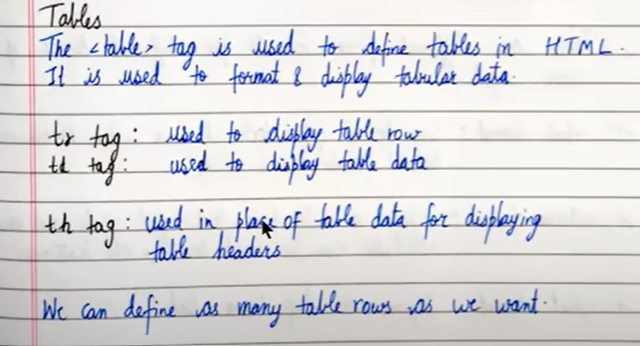 Tables
The <table> tag is used to define tables in HTML.
It is used to format & display tabular data.
tr tag: used to display table row
td tag: used to display table data
th tag: used in place of table data for displaying
table headers
We can define as many table rows as we want.